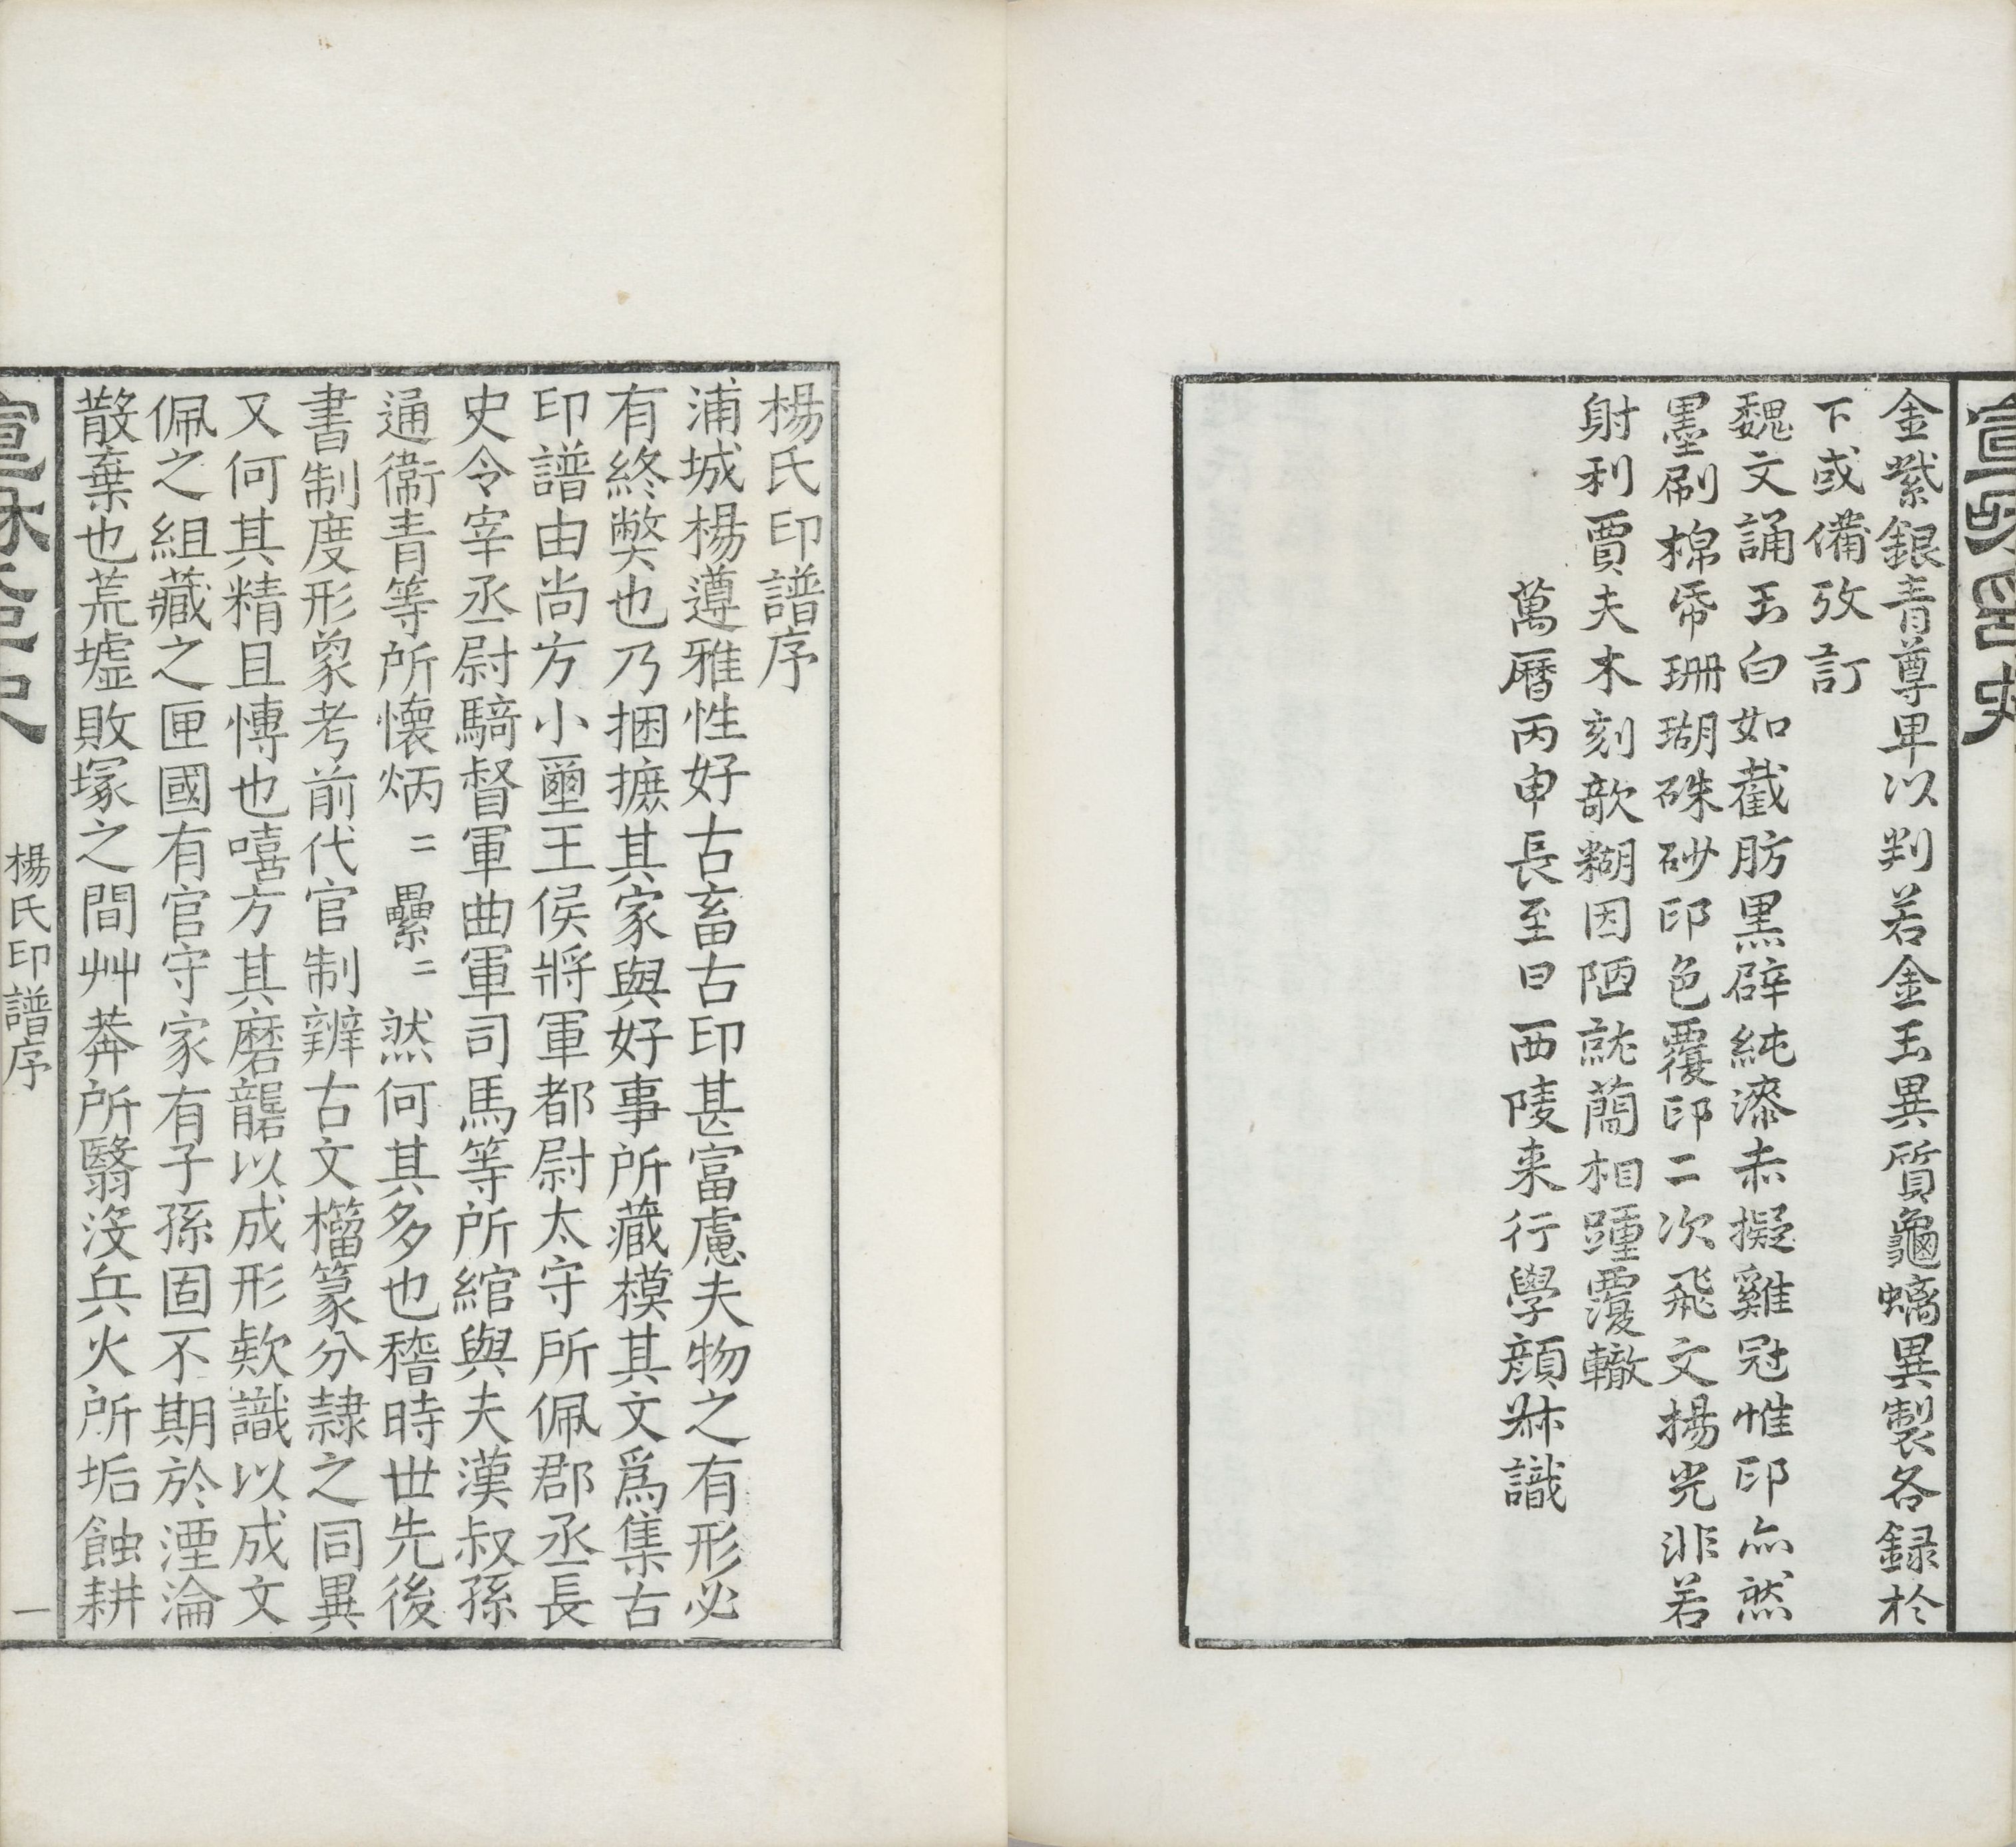 金紫銀青尊卑以判若金玉異質龜螭異製各録於
下或備攷訂
魏文誦玉白如截肪黒辟純漆赤擬雞冠惟印亦然
墨刷棉帋珊瑚硃砂印色覆印二次飛文揚光非若
射利賈夫木刻歊糊因陋就蕳相踵覆轍
萬曆丙申長至日西陵来行學顔𠦑識
楊氏印譜序
浦城楊遵雅性好古畜古印甚富慮夫物之有形必
有終獘也乃捆摭其家與好事所藏模其文爲集古
印譜由尚方小璽王侯將軍都尉太守所佩郡丞長
史令宰丞尉騎督軍曲軍司馬等所綰與夫漢叔孫
通衞青等所懷炳二纍二然何其多也稽時世先後
書制度形象考前代官制辨古文榴篆分隷之同異
又何其精且愽也嘻方其磨礲以成形欵識以成文
佩之組藏之匣國有官守家有子孫固不期於湮淪
散棄也荒墟敗塚之間艸莽所翳沒兵火所垢蝕耕
楊氏印譜序
一